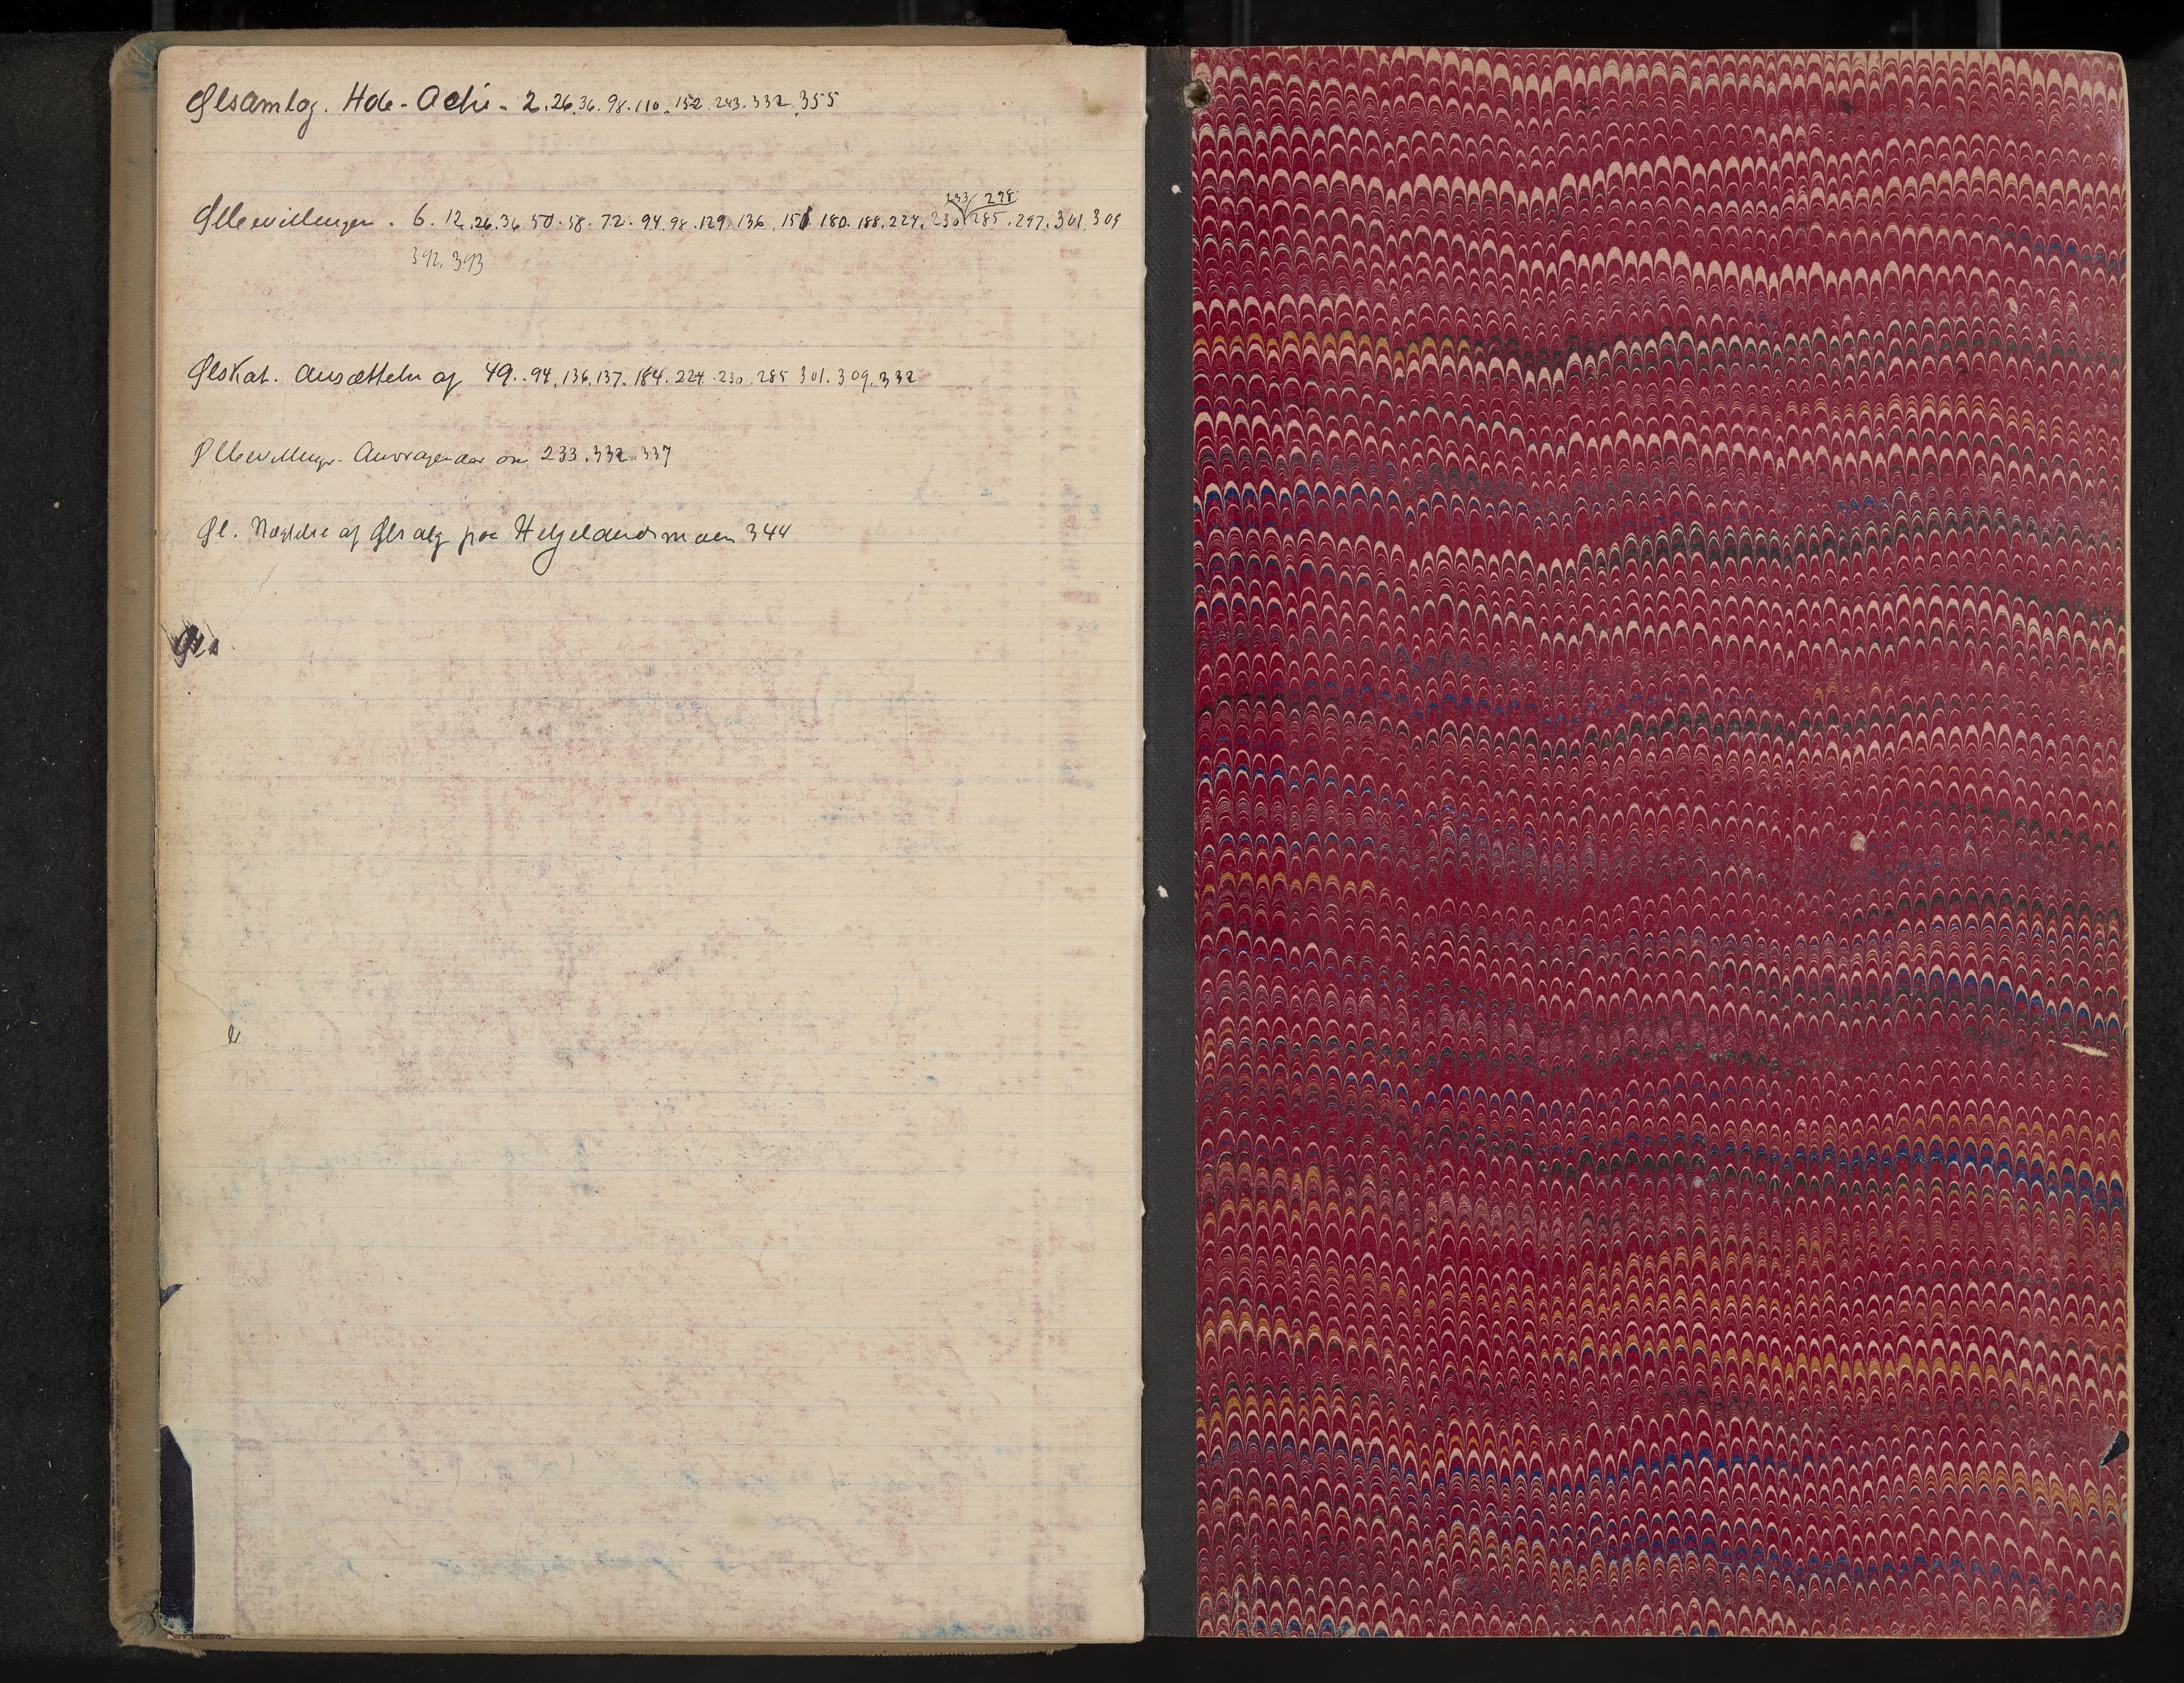 Ølsamlag. Hde-Actie - 2. 26. 36. 98. 110. 152. 243. 332. 355
233 / 298
Ølbevillinger. 6. 12. 26. 36. 50. 58. 72. 94. 98. 129. 136. 151 180. 188. 224. 230 285. 297. 301. 309
392. 393
Ølskat. Ansættelse af 49. 94. 136. 137. 184. 224. 230. 285 301. 309. 332
Ølbevillinger. Andragender om 233. 332. 337
Øl. Nægtelse af Ølsalg paa Helgelandsmoen 344
Øls